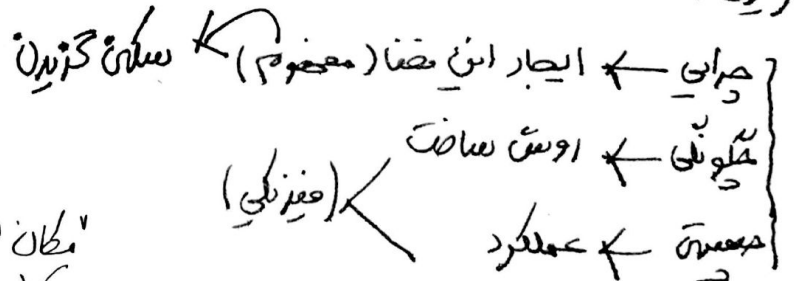 چرایی ← ایجاد این فضا (مفهوم) ← سکنی گزیدن
چگونگی ← روش ساخت
(فیزیکی)
چیستی ← عملکرد
"مکان